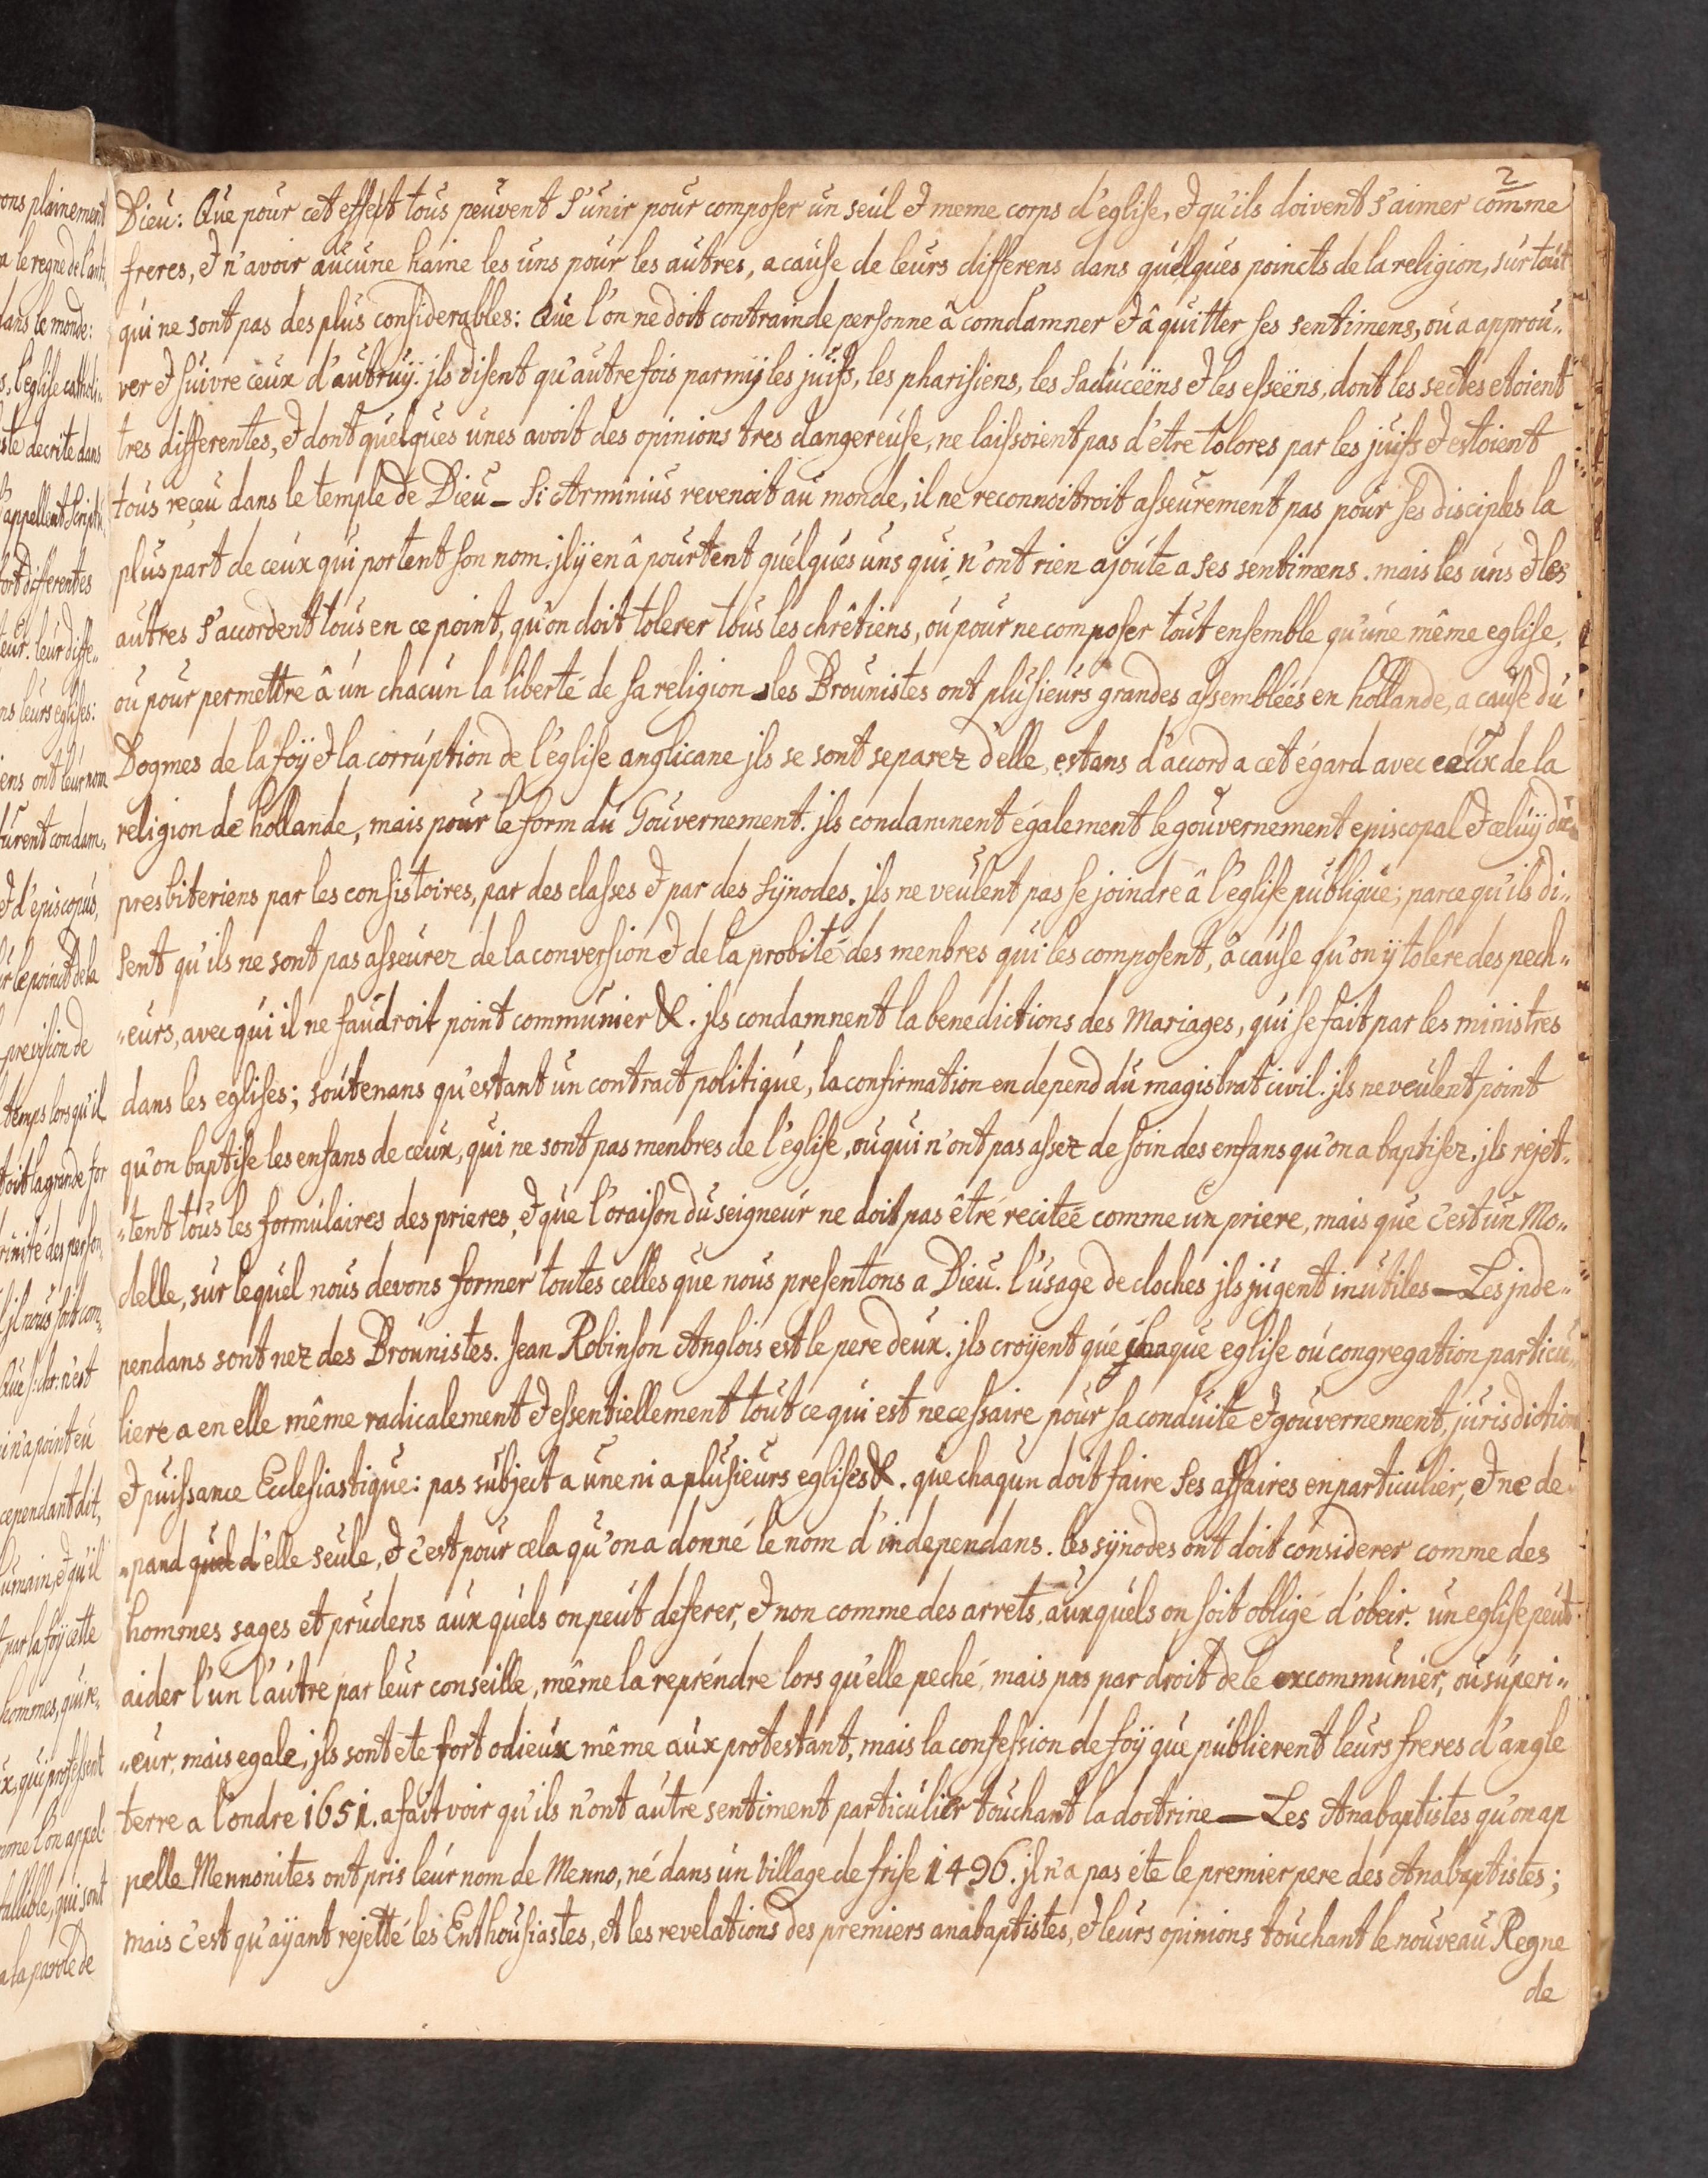 2
Dieu: Que pour cet effect tous peuvent s'unir pour composer un seul et meme corps d'eglise, et qu'ils doivent s'aimer comme
freres, et n'avoir aucune haine les uns pour les autres, a cause de leurs differens dans quelques poincts de la religion, sur tout
qui ne sont pas des plus considerables: Que l'on ne doit contrainde personne â comdamner et â quitter ses sentimens, ou a approu-
ver et suivre ceux d'autruÿ. jls disent qu'autrefois parmij les juifs, les pharisiens, les saduceëns et les esseëns, dont les sectes etoient
tres differentes, et dont quelques unes avoit des opinions tres dangereuse, ne laissoient pas d'etre tolores par les juifs et estoient
tous reçeu dans le temple de Dieu – Si Arminius revenoit au monde, il ne reconnoitroit asseurement pas pour ses disciples la
plus part de ceux qui portent son nom. jl ÿ en â pourtent quelques uns qui n'ont rien ajoute a ses sentimens. mais les uns et les
autres s'accordent tous en ce point, qu'on doit tolerer tous les chrêtiens, ou pour ne composer tout ensemble qu'une même eglise,
ou pour permettre â un chacun la liberté de sa religion – les Brounistes ont plusieurs grandes assemblées en hollande, a cause du
Dogmes de la foÿ et la corruption de l'église anglicane jls se sont separez d'elle, estans d'accord a cet égard avec ceux de la
religion de hollande, mais pour le form du Gouvernement. jls condamnent également le gouvernement episcopal et celuÿ du
presbiteriens par les consistoires, par des classes et par des sÿnodes. jls ne veulent pas se joindre â l'eglise publique; parce qu'ils di-
sent qu'ils ne sont pas asseurez de la conversion et de la probité des menbres qui les composent, â cause qu'on ÿ tolere des pech-
-eurs, avec qui il ne faudroit point communier &. jls condamnent la benedictions des Mariages, qui se fait par les ministres
dans les eglises; soutenans qu'estant un contract politique, la confirmation en depend du magistrat civil. jls ne veulent point
qu'on baptise les enfans de ceux, qui ne sont pas menbres de l'église, ou qui n'ont pas assez de soin des enfans qu'on a baptisez. jls rejet-
-tent tous les formulaires des prieres, et que l'oraison du seigneur ne doit pas être recitée comme un priere, mais que c'est un Mo-
delle, sur lequel nous devons former toutes celles que nous presentons a Dieu. l'usage de cloches jls jugent inutiles – Les jnde-
pendans sont nez des Brounistes. Jean Robinson Anglois est le pere deux. jls croÿent que chaque eglise ou congregation particu-
liere a en elle même radicalement et essentiellement tout ce qui est necessaire pour sa conduite et gouvernement, jurisdiction
et puissance Ecclesiastique: pas subject a une ni a plusieurs eglises &. que chaqun doit faire ses affaires en particulier, et ne de
-pand quel d'elle seule, et c'est pour cela qu'on a donné le nom d'independans. les sÿnodes ont doit considerer comme des
hommes sages et prudens aux quels on peut deferer, et non comme des arrets, aux quels on soit obligé d'obeir. un eglise peut
aider l'un l'autre par leur conseille, même la reprendre lors qu'elle peché, mais pas par droit de le excommunier, ou superi-
-eur, mais egale, jls sont ete fort odieux même aux protestant, mais la confession de foÿ que publierent leurs freres d'angle
terre a l'ondre 1651. a fait voir qu'ils n'ont autre sentiment particulier touchant la doctrine – Les Anabaptistes qu'on ap
pelle Mennonites ont pris leur nom de Menno, né dans un village de frise 1496. jl n'a pas éte le premier pere des Anabaptistes;
mais c'est qu'aÿant rejetté les Enthousiastes, et les revelations des premiers anabaptistes, et leurs opinions touchant le nouveau Regne
de